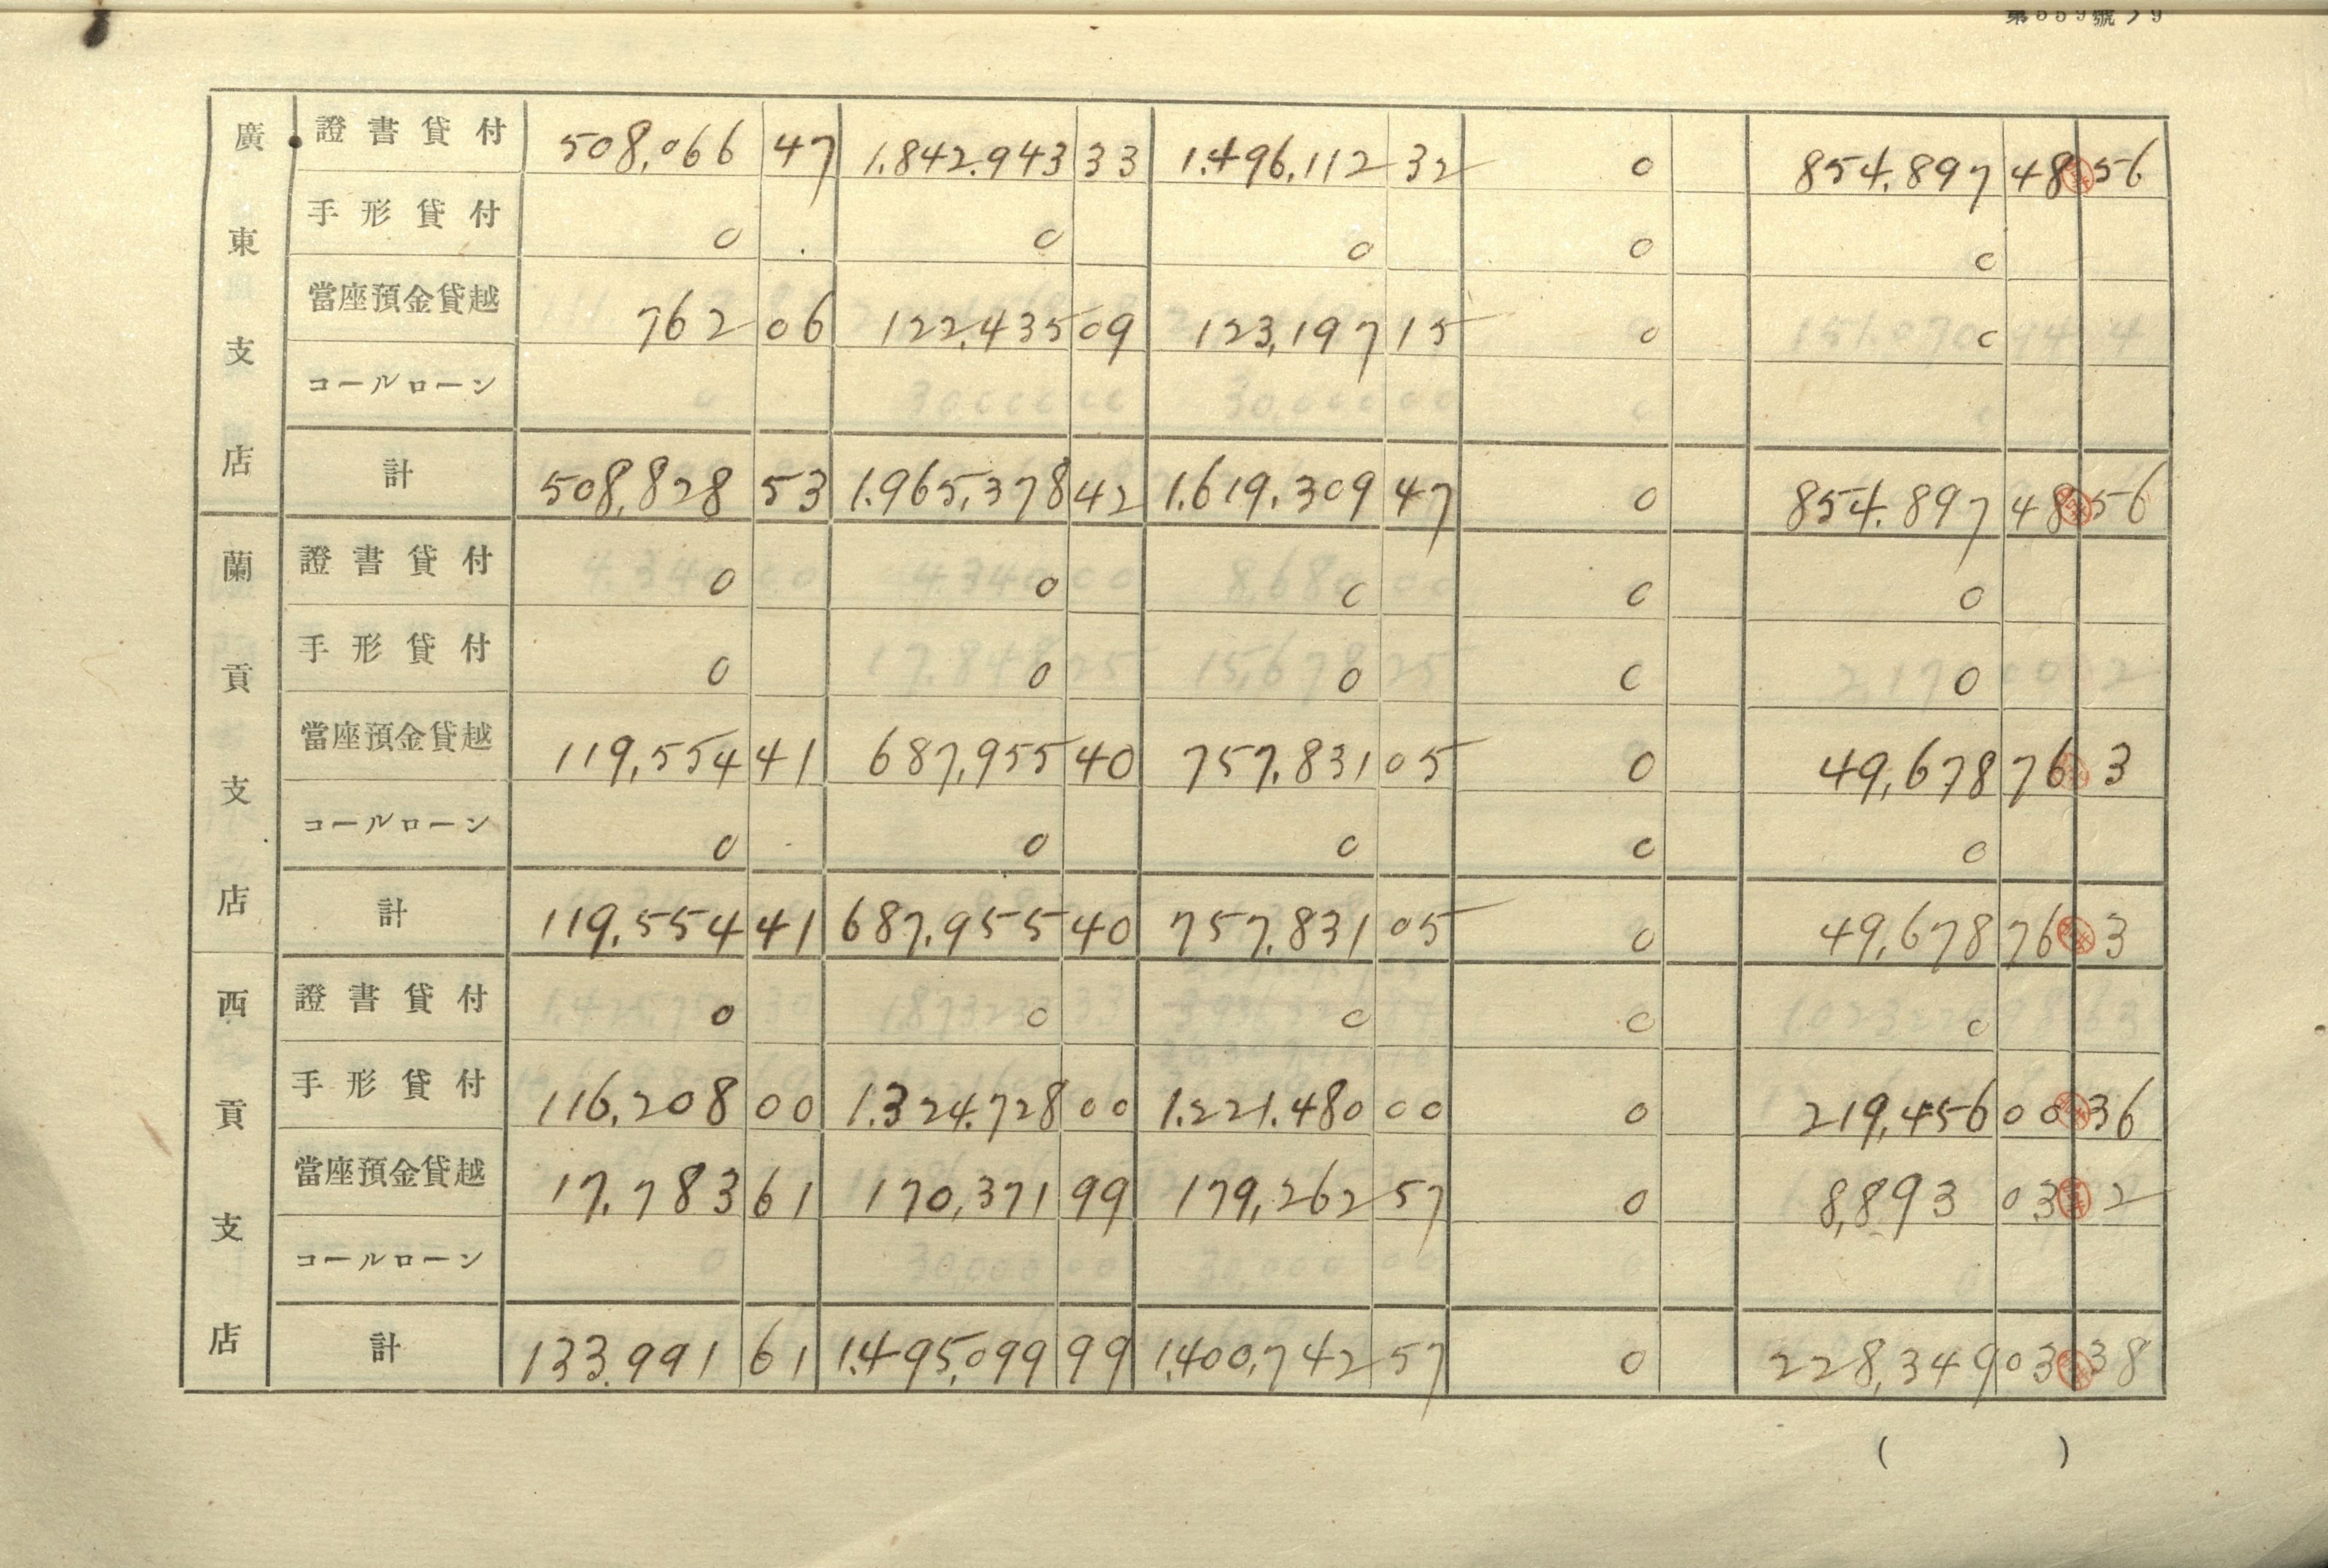 第559號ノ9
廣東支店
證書貸付 508,066 47 1.842.943 33 1.496.112 32 0 854.897 48 56
手形貸付 0 0 0 0 0
當座預金貸越 762 06 122.435 09 123,197 15 0 0
コールローン
計 508,828 53 1.965.378 42 1.619.309 47 0 854.897 48 56
蘭貢支店
證書貸付 0 0 0 0 0
手形貸付 0 0 0 0 0
當座預金貸越 119,554 41 687,955 40 757.831 05 0 49,678 76 3
コールローン 0 0 0 0 0
計 119.554 41 687.955 40 757.831 05 0 49,678 76 3
西貢支店
證書貸付 0 0 0 0 0
手形貸付 116.208 00 1.324.728 00 1.221.480 00 0 219,456 00 36
當座預金貸越 17.783 61 170,371 99 179,262 57 0 8,893 03 2
コールローン
計 133.991 61 1.495.099 99 1.400,742 57 0 228,349 03 38
( )